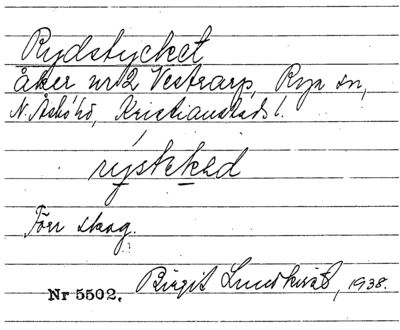 Rydstycket
Åker nr 2 Vestrarp, Rya sn,
N. Åsbo hd, Kristianstads l.
rystekkəd
Förr skog.
Nr 5502. Birgit Lundkvist, 1938.